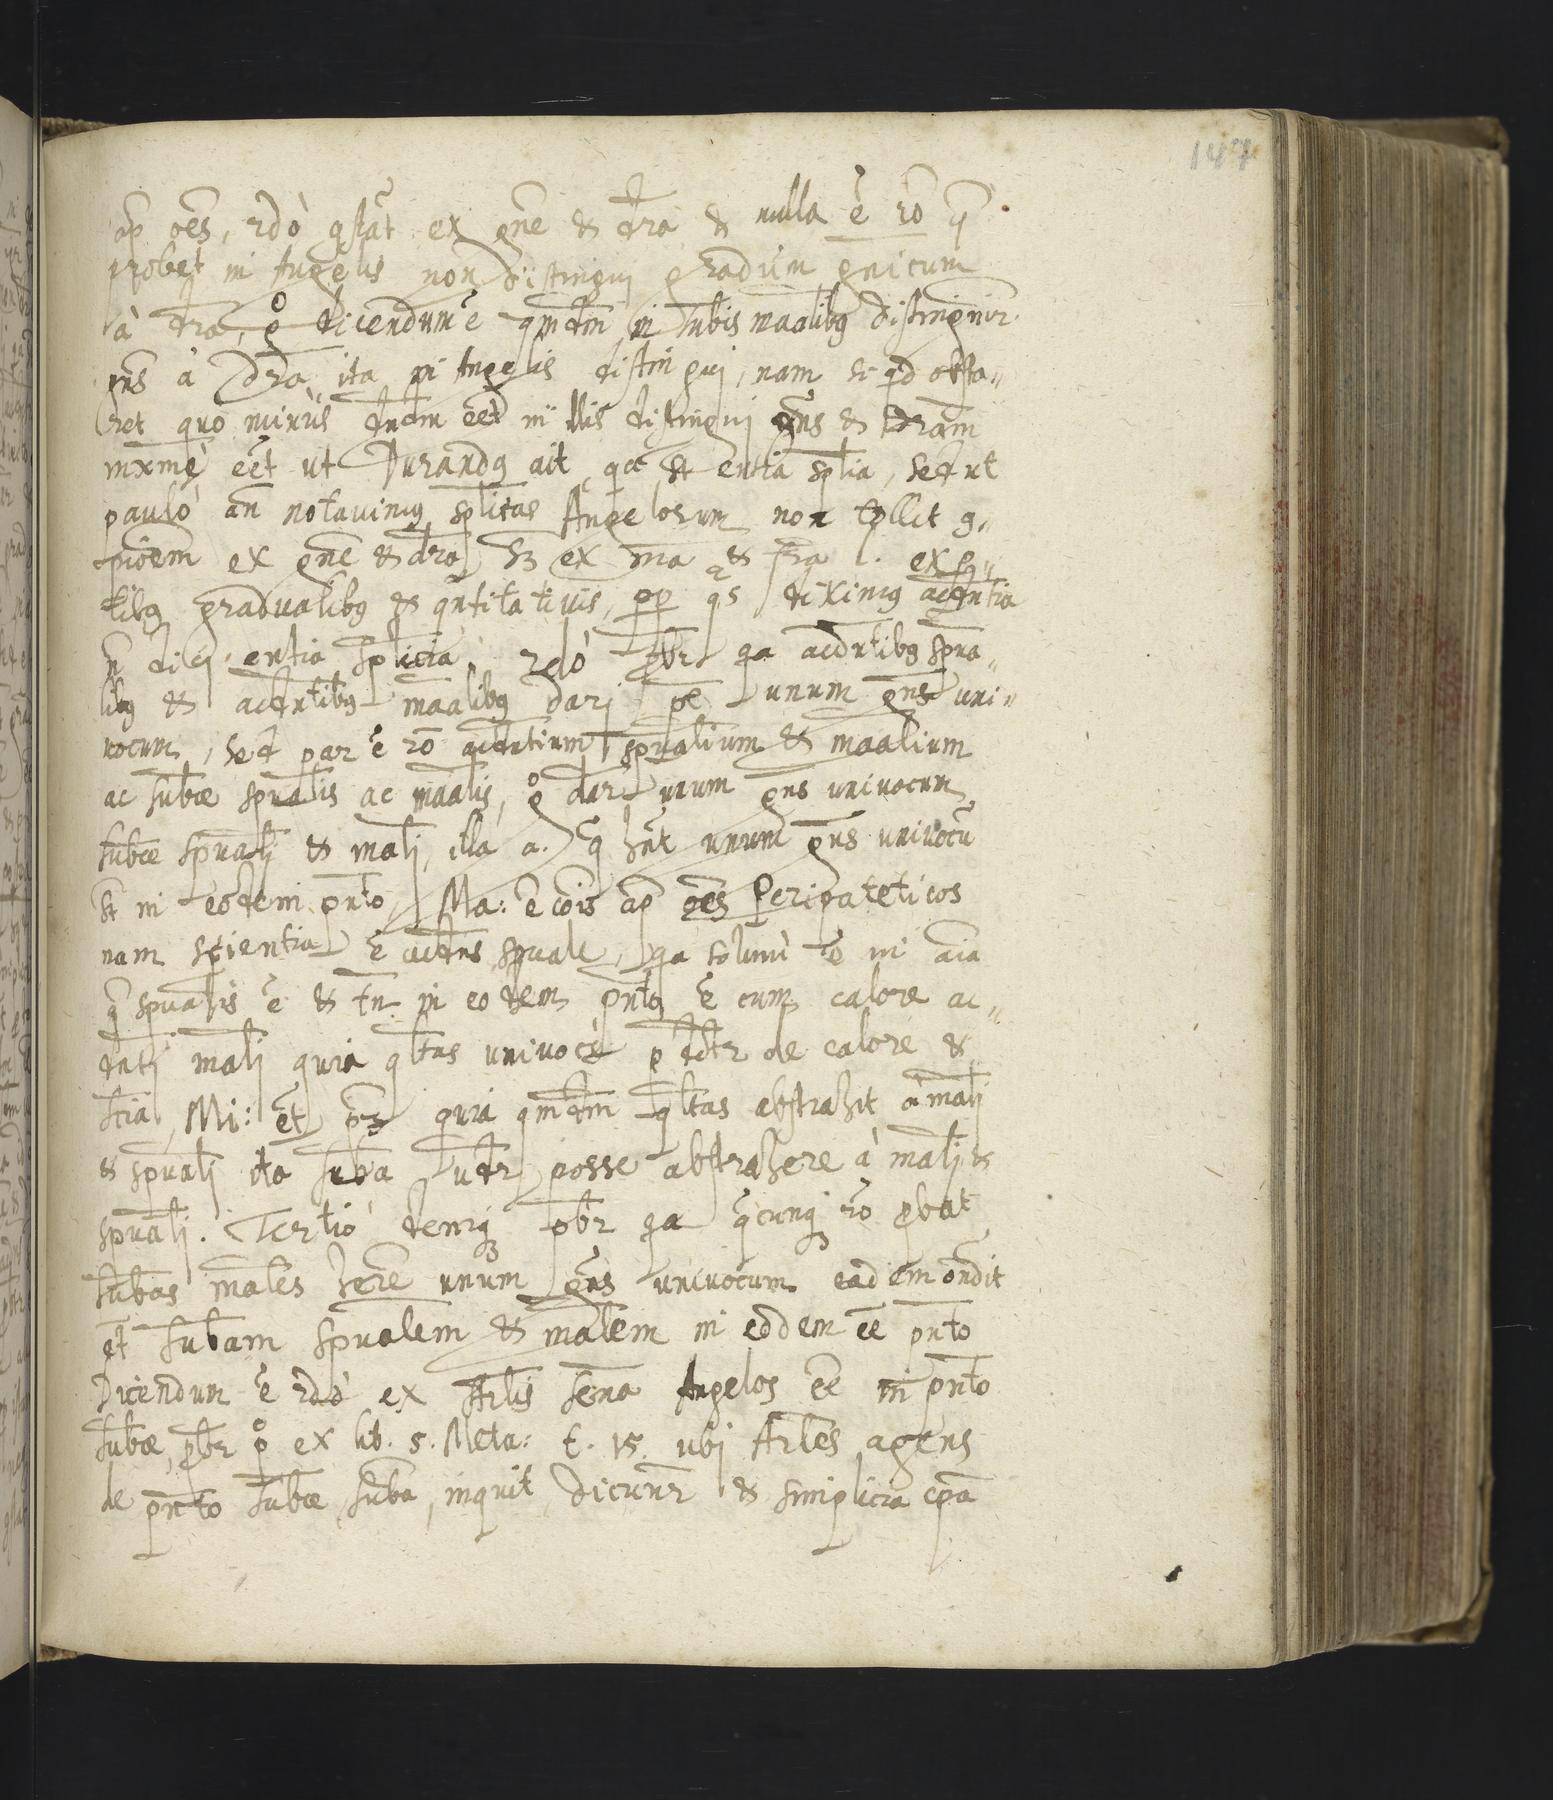 147
ap̄ oēs, 2dò 9stāt ex gn̄e & dr̄a & nulla ē rō q̄
probet in Angelis non distingui gradum gn̄icum
à dr̄a, g° dicendum ē qm̄dm̄ in sūbis māalibꝯ distinguir̄
gn̄s à dr̄a ita in Angelis distingui, nam si qd obsta„
ret quo minùs dn̄dm̄ eēt in illis distingui gn̄s & dr̄am
mx̄mè eēt ut Durandꝯ ait qa st̄ entia sp̄lia, sed ut
paulò an̄ notavimꝯ sp̄litas Angelorum non tollit 9„
piōem ex gn̄e & dr̄a sꝫ ex mā & fr̄a l. ex p„
tibꝯ gradualibꝯ & qn̄titativis, pp̄ qs diximꝯ acd̄ntia
n̄ dici entia sp̄licia. 2dò pb̄r qa acd̄ntibꝯ sp̄ua„
libꝯ & acd̄ntibꝯ māalibꝯ dari pē unum gn̄s uni„
vocum, sed par ē rō acd̄ntium sp̄ualium & māalium
ac sūbæ sp̄ualis ac māalis, g° dar̄ unum gn̄s univocum
sūbæ sp̄uali & māli, illa a. q̄ hn̄t unum gn̄s univocū
st̄ in eodem pn̄to, Ma: ē cōis ap̄ oēs Peripateticos
nam scientia ē acd̄ns sp̄uale, qa solùm ē in aīa
q̄ sp̄ualis ē & tn̄ in eodem pn̄to ē cum calore ac„
dn̄ti māli quia ql̄tas univocè pd̄tr de calore &
sc̄ia, Mi: ēt pꝫ quia qm̄dm̄ ql̄tas abstrahit à māli
& sp̄uali ita sūba vd̄r posse abstrahere à māli &
sp̄uali. Tertiò deniqꝫ pb̄r qa q̄cunqꝫ rō pbat
sūbas māles hēre unum gn̄s univocum eadem on̄dit
ēt sūbam sp̄ualem & mālem in eodem eē pn̄to
Dicendum ē 2dò ex Ar̄lis sēna Angelos eē in pn̄to
sūbæ, pb̄r p° ex lib. 5. Meta: t. 15. ubi Ar̄les agens
de pn̄to sūbæ, sūba, inquit, dicunr̄ & simplicia cpā